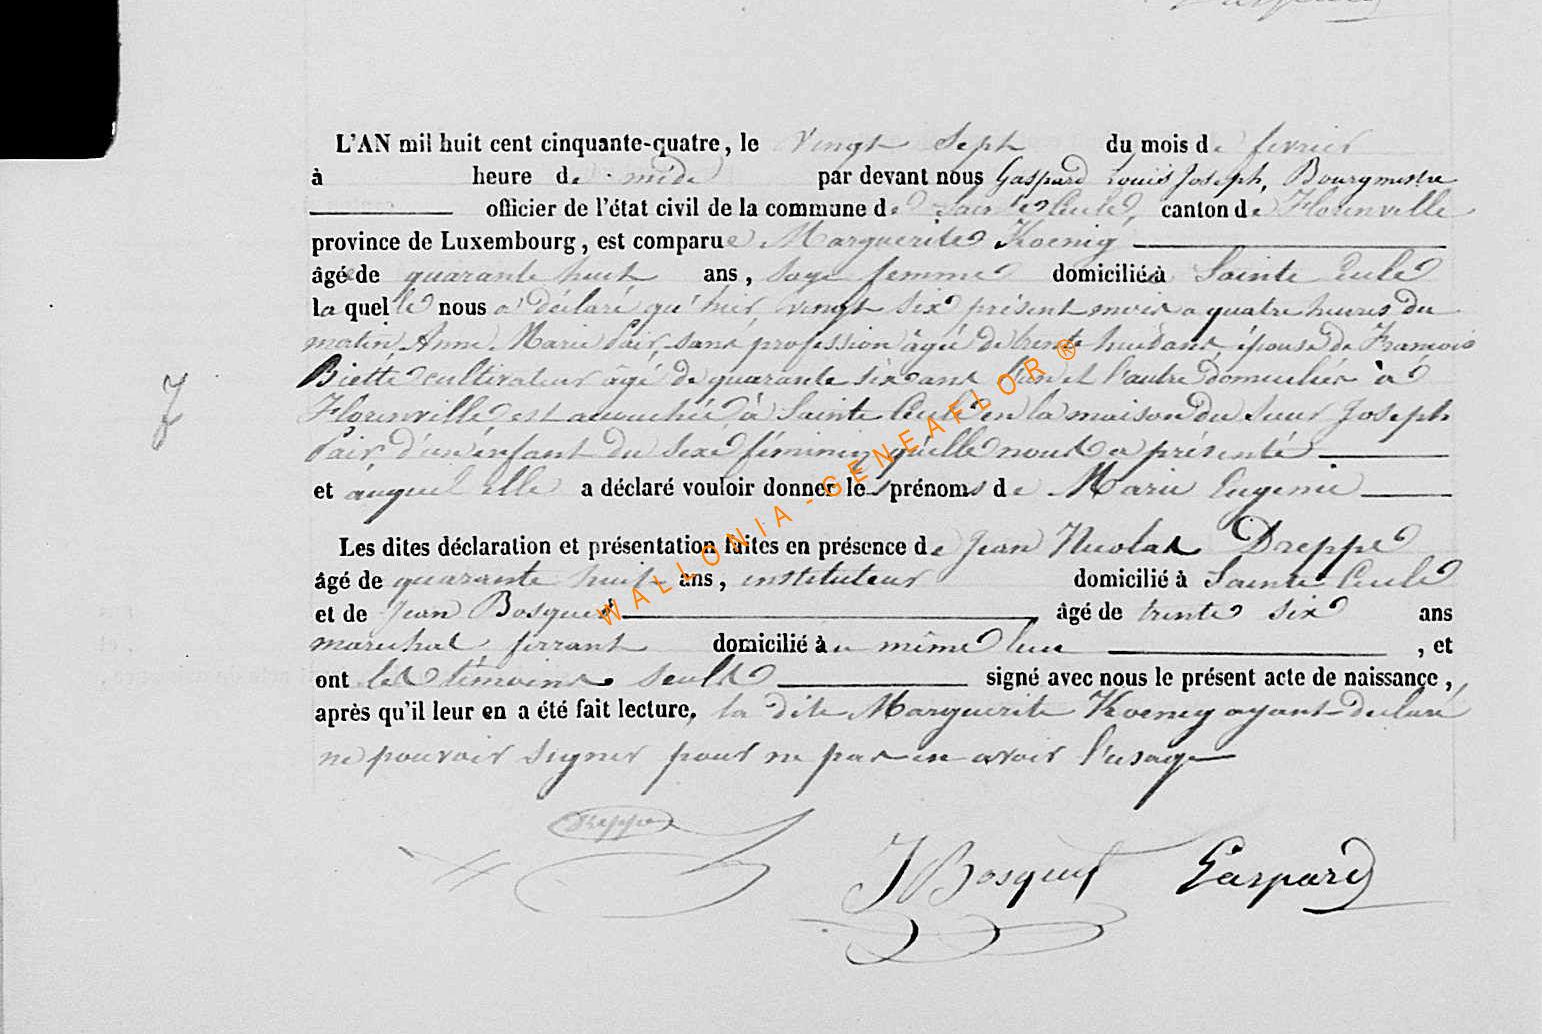 L'AN mil huit cent cinquante-quatre, le vingt Sept du mois de fevrier
à heure de midi par devant nous Gaspard Louis Joseph, Bourgmestre
officier de l'état civil de la commune de Sainte Cécile, canton de Florenville
province de Luxembourg, est comparue Marguerite Koenig
âgée de quarante huit ans, sage femme domiciliée à Sainte Cécile
laquelle nous a déclaré qu'hier vingt six présent mois a quatre heures du
matin Anne Marie sans profession âgée de trente huit ans épouse de Francois
Biette cultivateur âgé de quarante six ans l'un et l'autre domiciliés à
Florenville est accouchée à Sainte Cécile en la maison du Sieur Joseph
d'un enfant du sexe féminin qu'elle nous a présenté
et auquel elle a déclaré vouloir donner les prénoms de Marie Eugenie
Les dites déclaration et présentation faites en présence de Jean Nicolas Dreppe
âgé de quarante huit ans, instituteur domicilié à Sainte Cécile
et de Jean Bosquet âgé de trente six ans
marechal ferrant domicilié au même lieu , et
ont les témoins seuls signé avec nous le présent acte de naissance,
après qu'il leur en a été fait lecture, la dite Marguerite Koenig ayant declaré
ne pouvoir signer pour ne pas en avoir l'usage
Dreppe
J Bosquet Gaspard
WALLONIA-GENEAFLOR ®